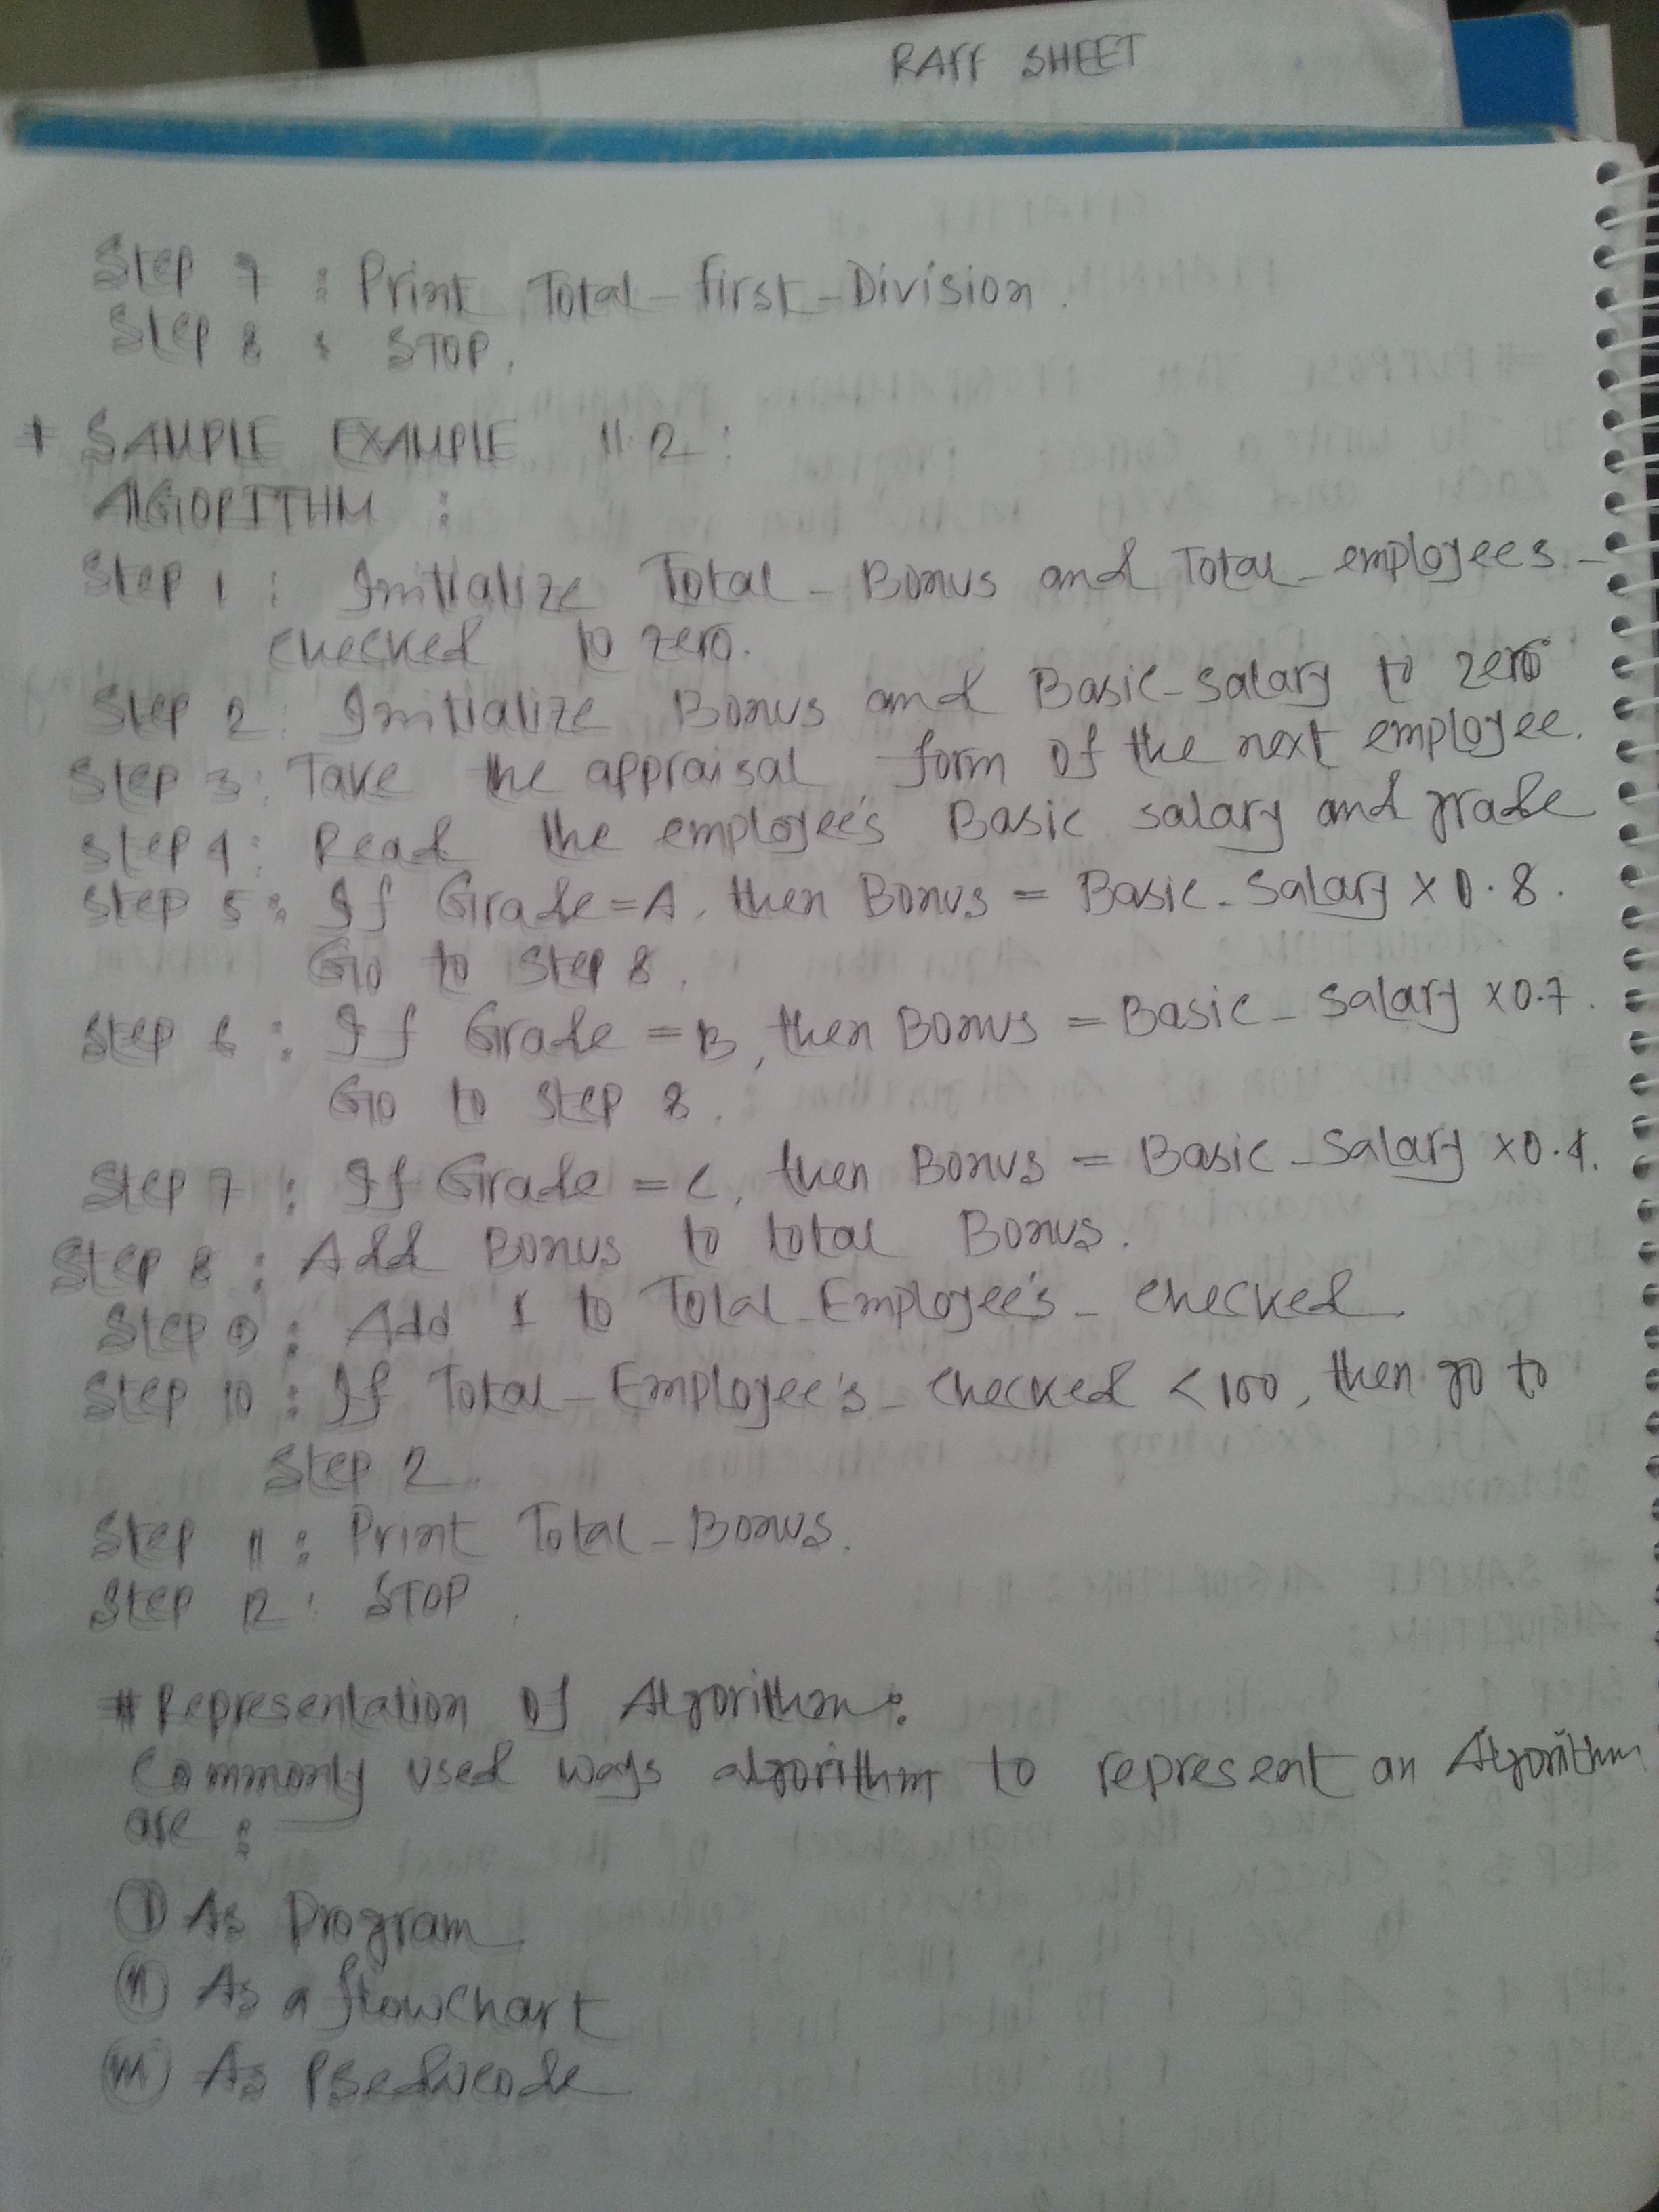 RAFF SHEET
Step 7 : Print Total-first-Division.
Step 8 : STOP.
# SAMPLE EXAMPLE 11.2 :
ALGORITHM :
Step 1 : Initialize Total-Bonus and Total-employees-
checked to zero.
Step 2 : Initialize Bonus and Basic-salary to zero
Step 3 : Take the appraisal form of the next employee.
Step 4 : Read the employee's Basic salary and grade
Step 5 : If Grade=A, then Bonus = Basic-Salary x 0.8.
Go to Step 8.
Step 6 : If Grade = B, then Bonus = Basic-Salary x 0.7.
Go to step 8.
Step 7 : If Grade = C, then Bonus = Basic-Salary x 0.4.
Step 8 : Add Bonus to total Bonus.
Step 9 : Add 1 to Total-Employee's-checked.
Step 10 : If Total-Employee's-checked < 100, then go to
Step 2
Step 11 : Print Total-Bonus.
Step 12 : STOP.
# Representation of Algorithm :
Commonly used ways algorithm to represent an Algorithm
are :
(I) As Program
(II) As a flowchart
(III) As Pseducode